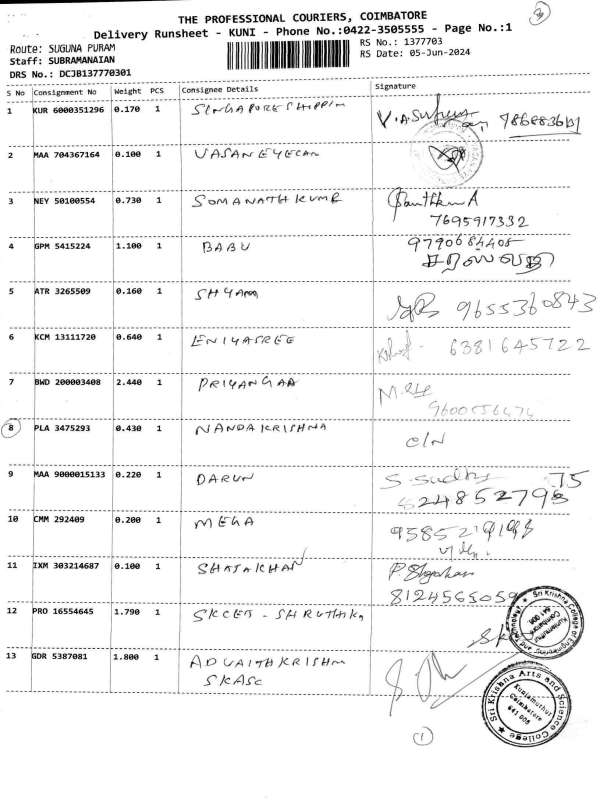 THE PROFESSIONAL COURIERS, COIMBATORE
Delivery Runsheet - KUNI - Phone No.:0422-3505555 - Page No.:1
Route: SUGUNA PURAM RS No.: 1377703
Staff: SUBRAMANAIAN RS Date: 05-Jun-2024
DRS No.: DCJB137770301
S No Consignment No Weight PCS Consignee Details Signature
1 KUR 6000351296 0.170 1 SINGAPORE SHIPPIN
2 MAA 704367164 0.100 1 VASAN EYECAR
3 NEY 50100554 0.730 1 SOMANATH KUMR
7695917332
4 GPM 5415224 1.100 1 BABU
5 ATR 3265509 0.160 1 SHYAM 9655360843
6 KCM 13111720 0.640 1 ENIYASREE 6381645722
7 BWD 200003408 2.440 1 PRIYANGAA
8 PLA 3475293 0.430 1 NANDA KRISHNA
9 MAA 9000015133 0.220 1 DARUN
10 CMM 292409 0.200 1 MEGA
11 IXM 303214687 0.100 1 SHAJAKHAN
8124565059
12 PRO 16554645 1.790 1 SKCET - SHRUTHIKA
Sri Krishna College of Engineering and Technology
Kuniamuthur
Coimbatore
641 008
13 GDR 5387081 1.800 1 ADVAITH KRISHN
SKASC
Sri Krishna Arts and Science College
Kuniamuthur
Coimbatore
641 008
1